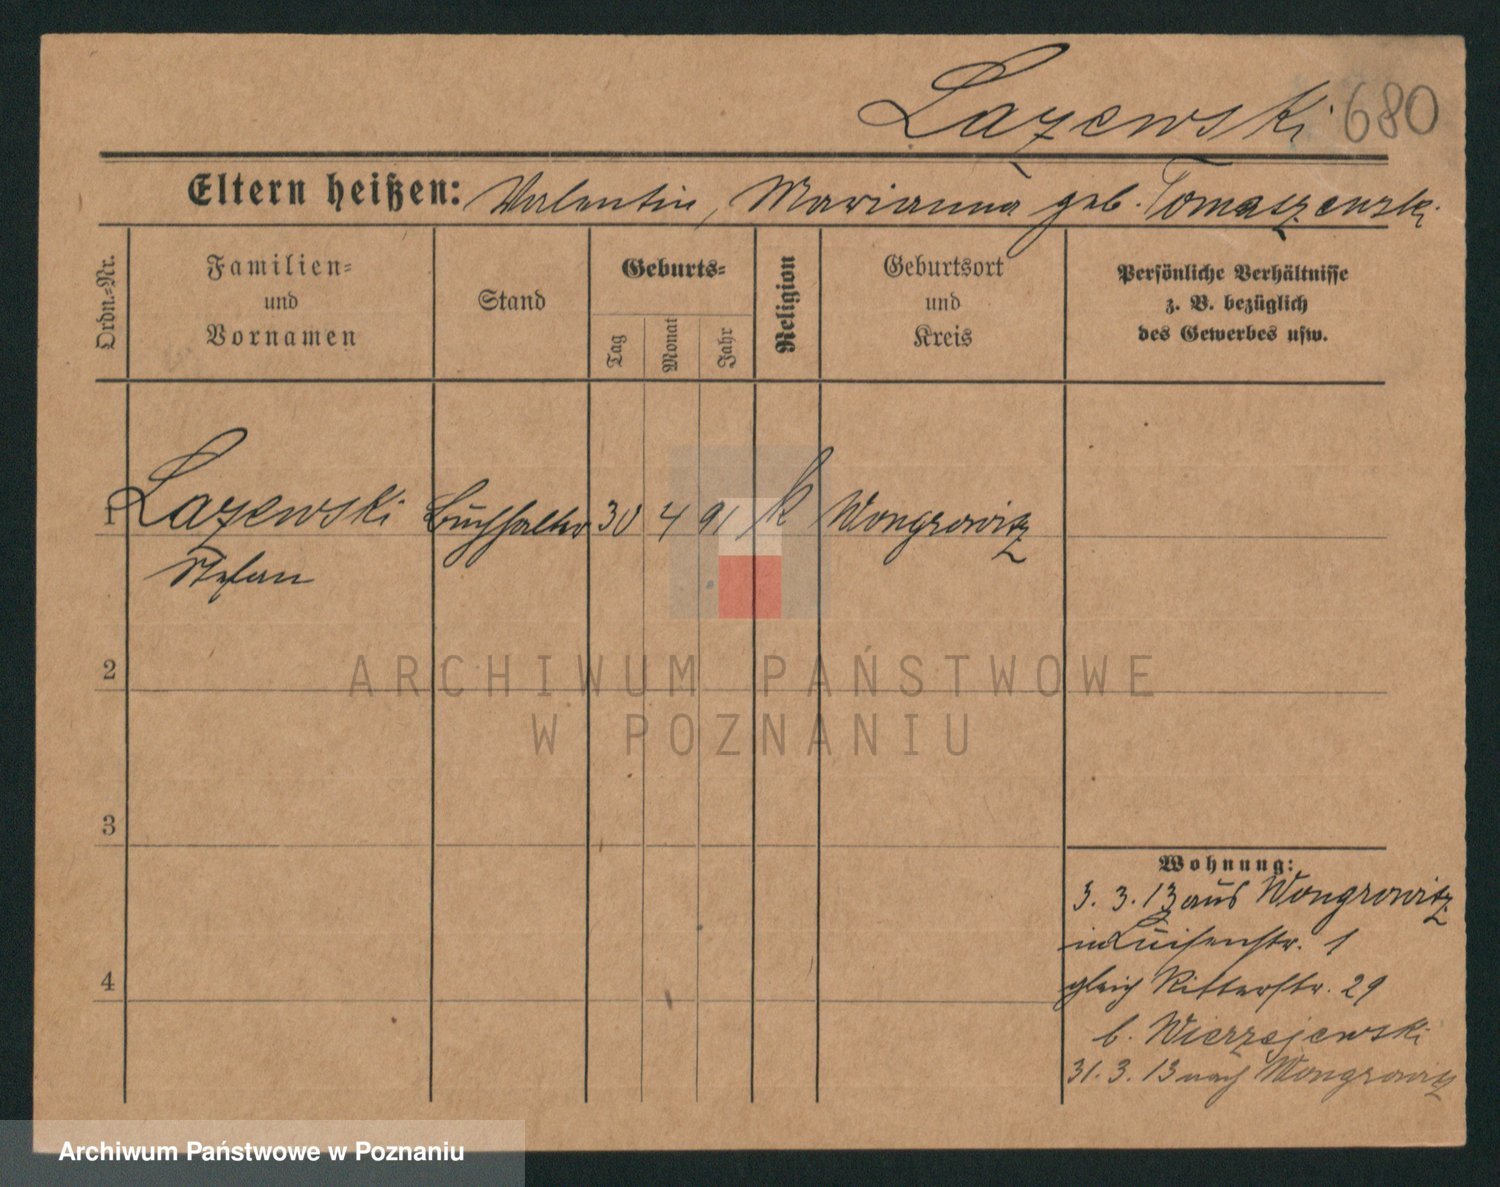 Lazewski 680
Eltern heißen: Valentin, Marianna geb. Tomaszewski
Ordn.-Nr.
Familien-
und
Vornamen
Stand
Geburts-
Tag
Monat
Jahr
Religion
Geburtsort
und
Kreis
Persönliche Verhältnisse
z. B. bezüglich
des Gewerbes usw.
1 Lazewski Buchhalter 30 4 91 k Wongrowitz
Stefan
2
3
4
Wohnung:
3. 3. 13 aus Wongrowitz
in Luisenstr. 1
gleich Ritterstr. 29
b. Wierzejewski
31. 3. 13 nach Wongrowitz
ARCHIWUM PAŃSTWOWE
W POZNANIU
Archiwum Państwowe w Poznaniu